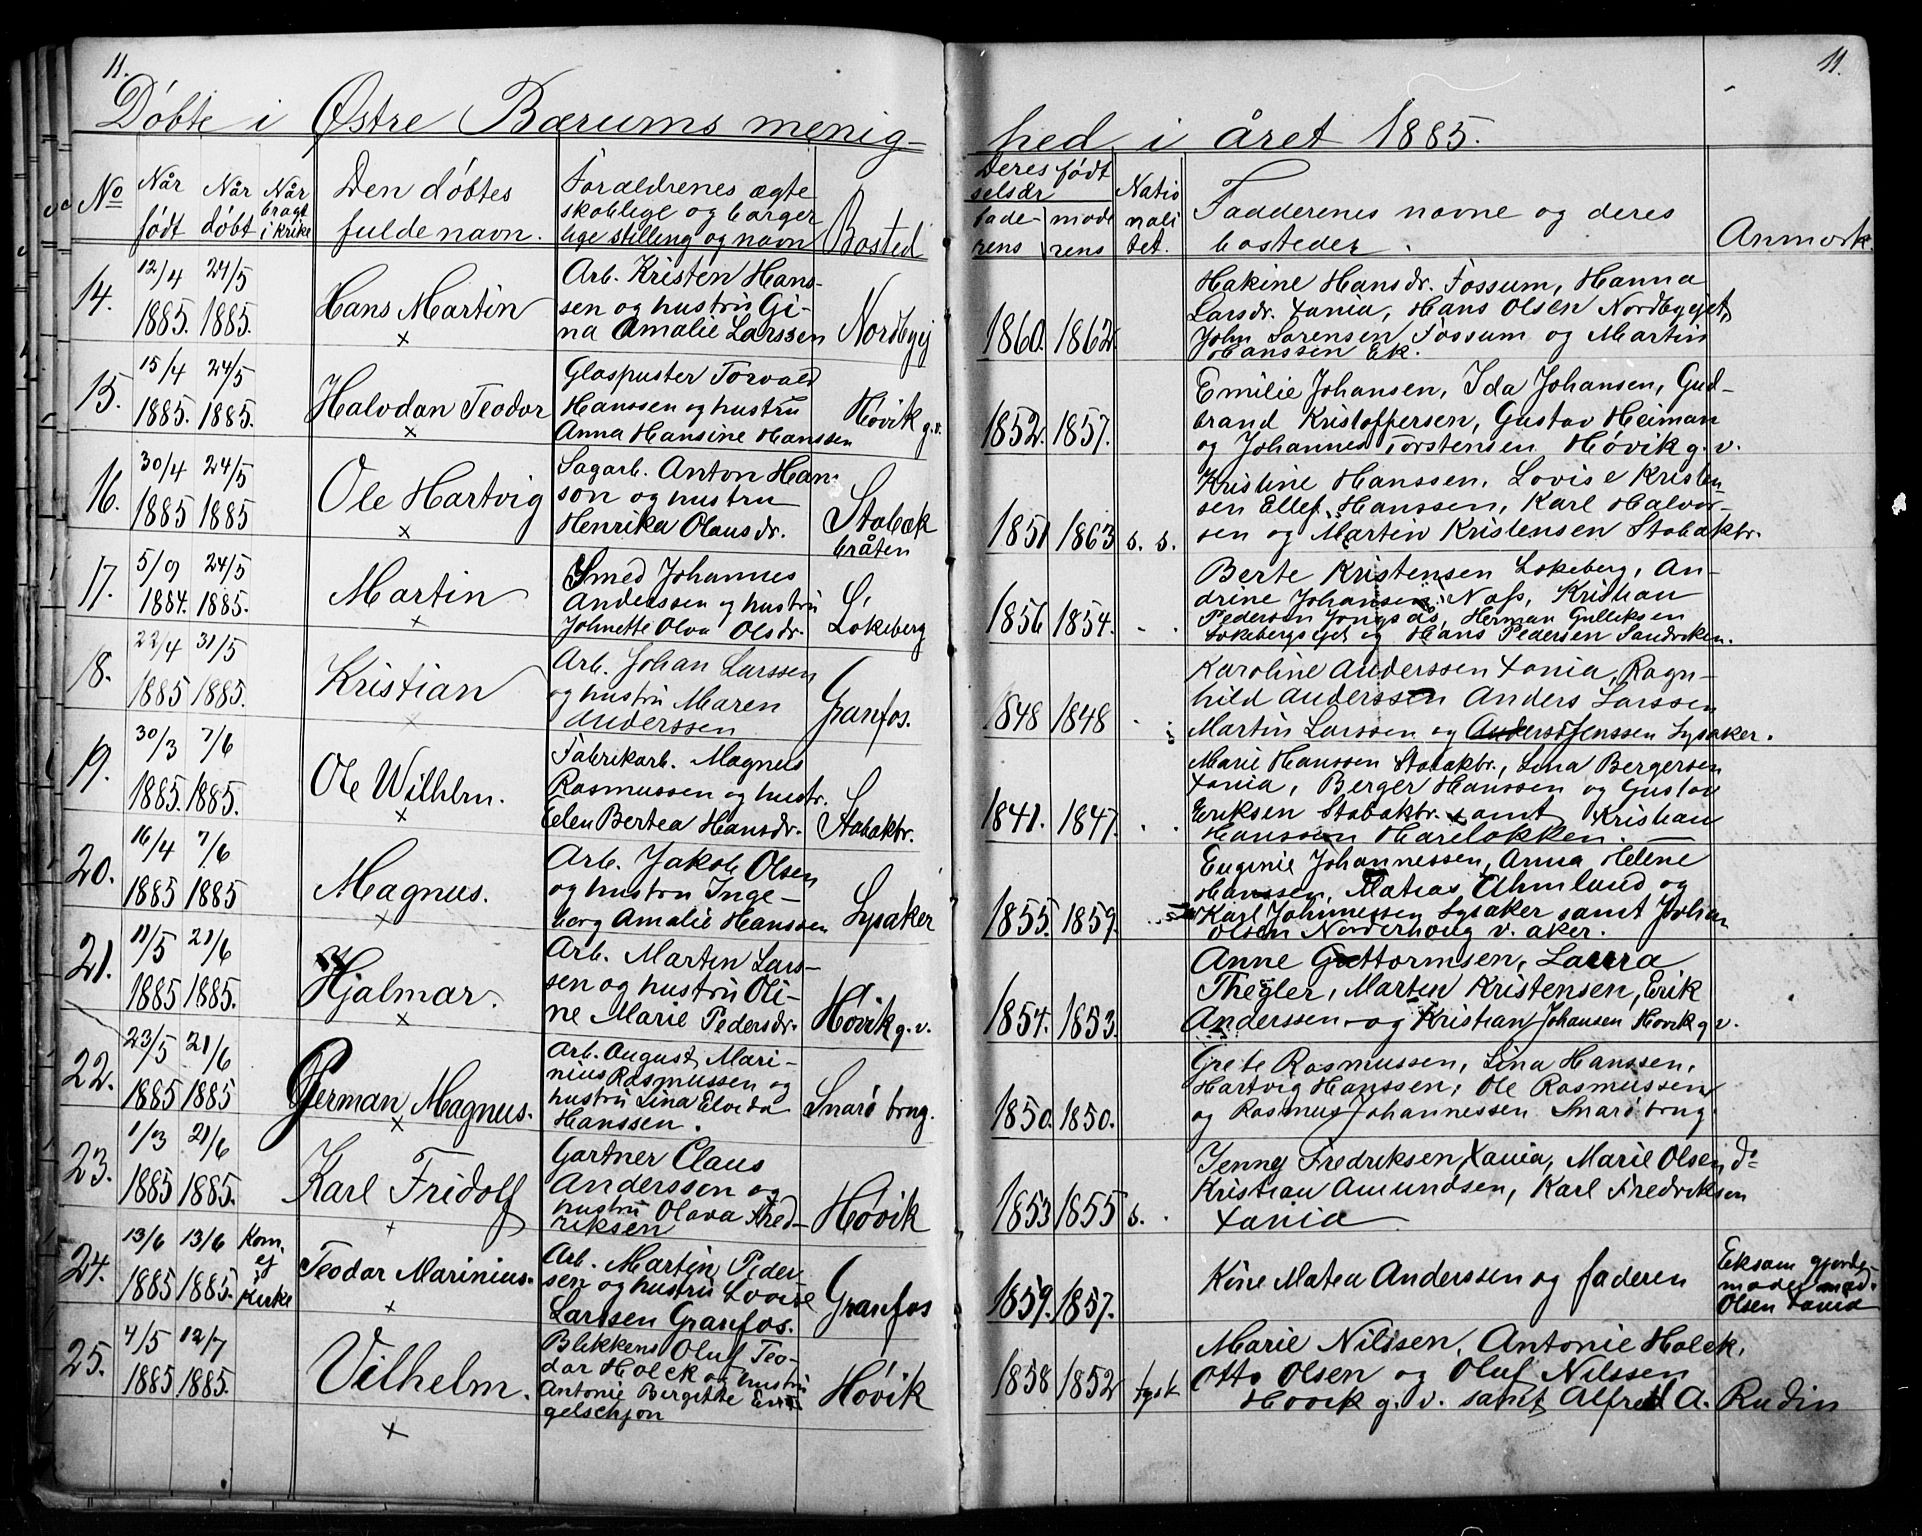 11.
11.
Döbte i Østre Bærums menig-
hed i året 1885.
No
Når født
Når döbt
Når bragt i Kirke
Den döbtes fulde navn.
Forældrenes ægteskablige og borgerlige stilling og navn
Bosted
Deres fødtselsår
faderens
moderens
Nationalitet.
Faddernes navne og deres bosteder.
Anmærk.
14.
12/4 1885.
24/5 1885.
Hans Martin
Arb. Kristen Hans-
sen og hustru Gi-
na Amalie Larssen
Nordbyej
1860.
1862.
Hakine Hansdr. Fossum, Hanna
Larsdr. Xania, Hans Olsen Nordbyejet,
John Sørensen Fossum og Martin
Hanssen Ek.
15.
15/4 1885.
24/5 1885.
Halvdan Teodor
Glaspuster Torvald
Hanssen og hustru
Anna Hansine Hanssen
Høvik g.v.
1852.
1857.
Emilie Johansen, Ida Johansen, Gud-
brand Kristoffersen, Gustav Heiman
og Johannes Torstensen Høvik g. v.
16.
30/4 1885
24/5 1885
Ole Hartvig
Sagarb. Anton Han-
son og hustru
Henrika Olausdr.
Stabæk
bråten
1851
1863
s. s.
Kristine Hanssen, Lovise Kristen-
sen Ellef Hanssen, Karl Halvor-
sen og Martin Kristensen Stabækbr.
17.
5/9 1884.
24/5 1885.
Martin
Smed Johannes
Anderssen og hustru
Johnette Olva Olsdr.
Løkeberg
1856
1854.
Berte Kristensen Løkeberg, An-
drine Johansen Næss, Kristian
Pedersen Jongsås, Herman Gulliksen
Løkebergejet og Hans Pedersen Sandviken.
18.
22/4 1885
31/5 1885.
Kristian
Arb. Johan Larssen
og hustru Maren
Anderssen
Granfos.
1848
1848
Karoline Anderssen Xania, Ragn-
hild Anderssen Anders Larssen
Martin Larssen og Jenssen Lysaker.
19.
30/3 1885.
7/6 1885.
Ole Wilhlm.
Fabrikarb. Magnus
Rasmussen og hustr.
Elen Bertea Hansdr.
Stabækbr.
1841.
1847.
Marie Hanssen Stabækbr., Lina Bergersen
Xania, Berger Hanssen og Gustav
Eriksen Stabækbr. samt Kristian
Hanssen Harelökken.
20.
16/4 1885
7/6 1885
Magnus.
Arb. Jakob Olsen
og hustru Inge-
borg Amalie Hanssen
Lysaker
1855.
1859.
Euginie Johannessen, Anna Helene
Hanssen, Matias Almlund og
Karl Johannessen Lysaker samt Johan
Olsen Norderhoug v. aker.
21.
11/5 1885
21/6 1885.
Hjalmar.
Arb. Martin Lars-
sen og hustru Oli-
ne Marie Pedersdr.
Høvik g. v.
1854.
1853.
Anne Guttormsen, Laura
Thegler, Martin Kristensen, Erik
Anderssen og Kristian Johansen Høvik g v.
22.
23/5 1885
21/6 1885
German Magnus.
Arb. August Mari-
nius Rasmussen og
hustru Lina Elvida
Hanssen.
Snarö brug.
1850.
1850.
Grete Rasmussen, Lina Hanssen,
Hartvig Hanssen, Ole Rasmussen
og Rasmus Johannessen Snarö brug.
23.
1/3 1885
21/6 1885.
Karl Fridolf
Gartner Claus
Andersson og
hustru Olava Fred-
riksen
Høvik
1853
1855
s.
Jenny Fredriksen Xania, Marie Olsen do
Kristian Amundsen, Karl Fredriksen
Xania
24.
13/6 1885
13/6 1885.
Kom ej i Kirke
Teodor Marinius.
Arb. Martin Peder-
sen og hustru Lovise
Larssen Granfos.
Granfos
1859.
1857.
Kine Matea Anderssen og faderen
Eksam gjorde-
moder mad.
Olsen Xania
25.
4/5 1885
12/7 1885.
Vilhelm.
Blikkens Oluf Teo-
dor Holck og hustru
Antonie Bergitte En-
gelschjøn
Høvik
1858
1852
tysk
Marie Nilssen, Antonie Holck,
Otto Olsen og Oluf Nilssen
Høvik g. v. samt Alfred A. Rudin